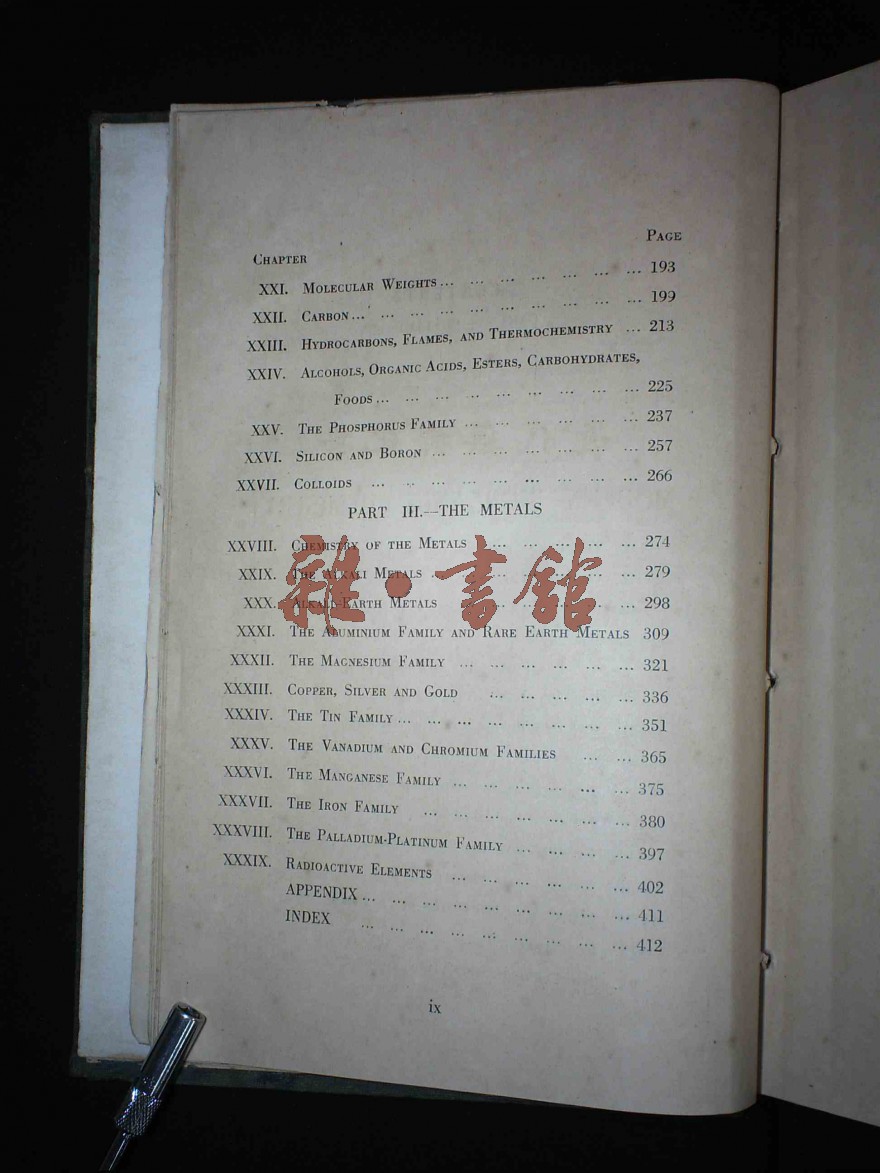 PAGE
CHAPTER
XXI. MOLECULAR WEIGHTS ... ... ... ... ... ... ... 193
XXII. CARBON ... ... ... ... ... ... ... ... ... ... 199
XXIII. HYDROCARBONS, FLAMES, AND THERMOCHEMISTRY ... 213
XXIV. ALCOHOLS, ORGANIC ACIDS, ESTERS, CARBOHYDRATES,
FOODS ... ... ... ... ... ... ... ... ... 225
XXV. THE PHOSPHORUS FAMILY ... ... ... ... ... ... 237
XXVI. SILICON AND BORON ... ... ... ... ... ... ... 257
XXVII. COLLOIDS ... ... ... ... ... ... ... ... ... 266
PART III.—THE METALS
XXVIII. CHEMISTRY OF THE METALS ... ... ... ... ... 274
XXIX. THE ALKALI METALS ... ... ... ... ... ... 279
XXX. ALKALI-EARTH METALS ... ... ... ... ... ... 298
XXXI. THE ALUMINIUM FAMILY AND RARE EARTH METALS 309
XXXII. THE MAGNESIUM FAMILY ... ... ... ... ... ... 321
XXXIII. COPPER, SILVER AND GOLD ... ... ... ... ... 336
XXXIV. THE TIN FAMILY ... ... ... ... ... ... ... ... 351
XXXV. THE VANADIUM AND CHROMIUM FAMILIES ... ... 365
XXXVI. THE MANGANESE FAMILY ... ... ... ... ... ... 375
XXXVII. THE IRON FAMILY ... ... ... ... ... ... ... 380
XXXVIII. THE PALLADIUM-PLATINUM FAMILY ... ... ... ... 397
XXXIX. RADIOACTIVE ELEMENTS ... ... ... ... ... ... 402
APPENDIX ... ... ... ... ... ... ... ... ... 411
INDEX ... ... ... ... ... ... ... ... ... 412
雜·書館
ix